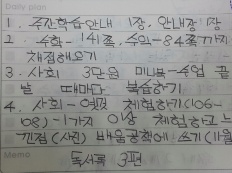 Daily plan
1. 주간학습안내 1장, 안내장 1장
2. 수학- 141쪽, 수익-84쪽까지
채점해오기
3. 사회 3단원 미니북-수업 끝
날 때마다 복습하기
4. 사회-옛것 체험하기(106-
08)-1가지 이상 체험하고 느
낀점(사진) 배움공책에 쓰기(11월
Memo
독서록 3편